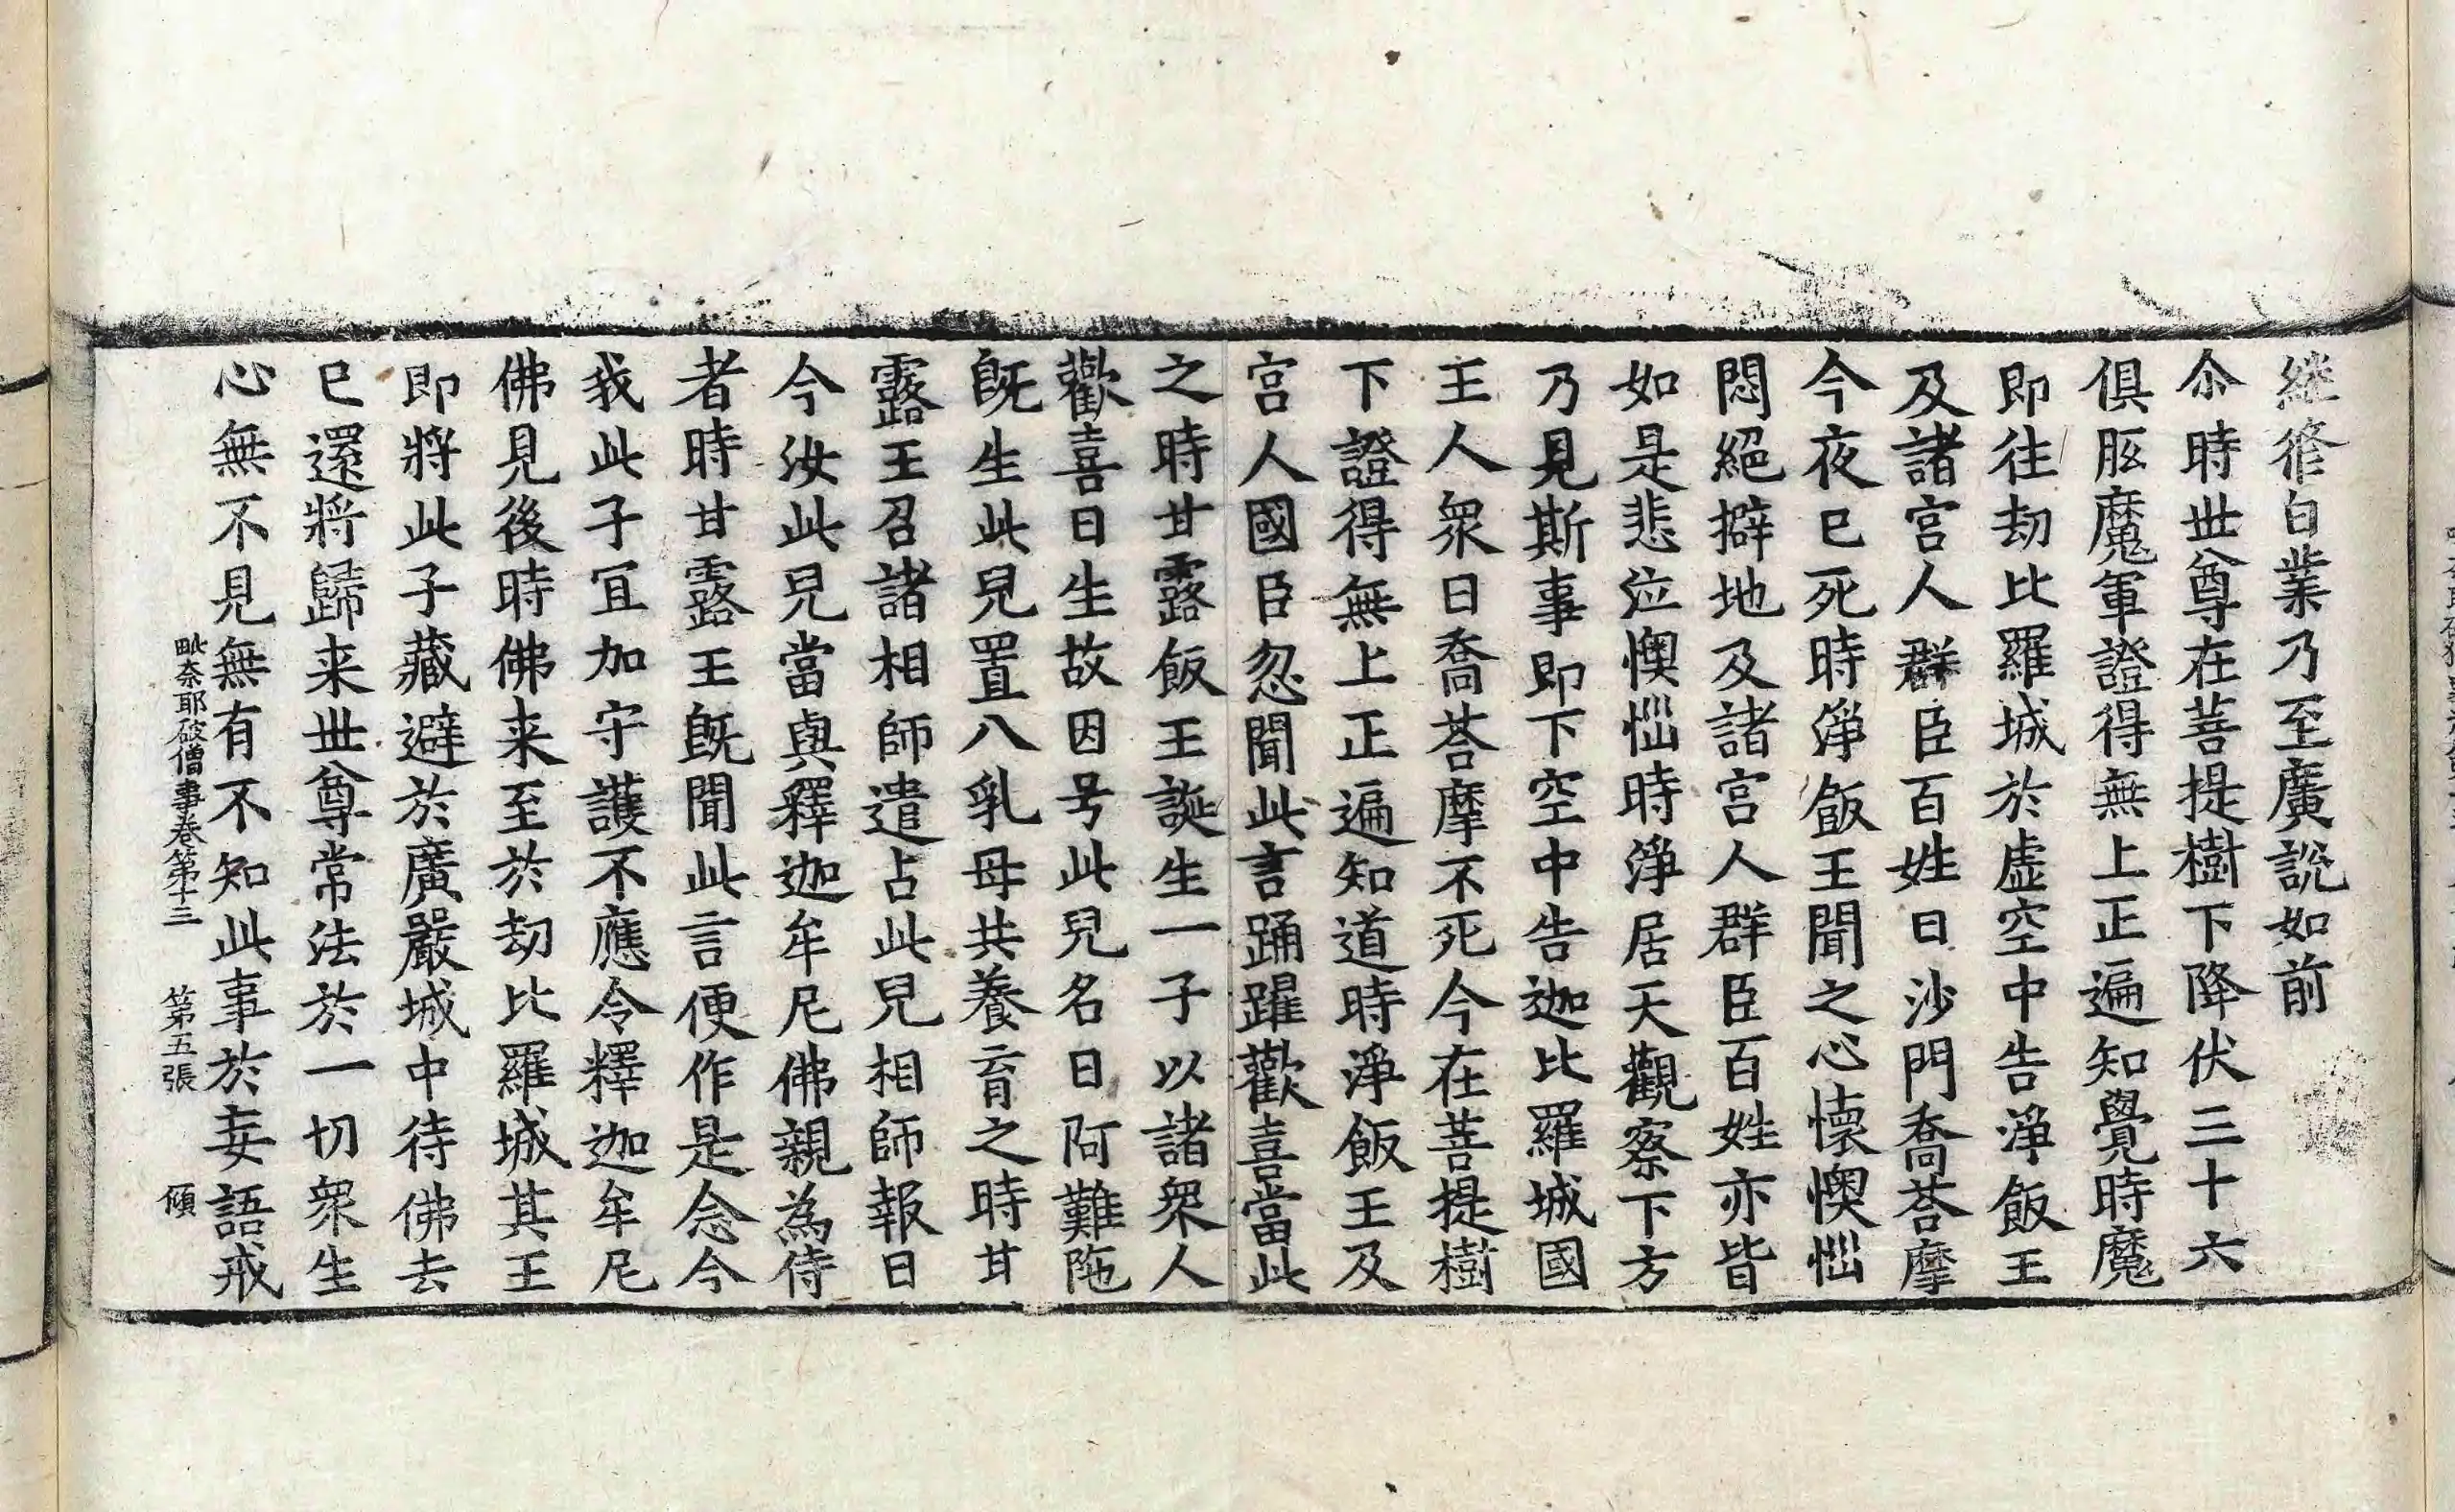 継修白業乃至廣說如前
尒時世尊在菩提樹下降伏三十六
俱胝魔軍證得無上正遍知覺時魔
即往劫比羅城於虛空中告淨飯王
及諸宮人群臣百姓曰沙門喬荅摩
今夜已死時淨飯王聞之心懷懊惱
悶絕擗地及諸宮人群臣百姓亦皆
如是悲泣懊惱時淨居天觀察下方
乃見斯事即下空中告迦比羅城國
王人衆曰喬荅摩不死今在菩提樹
下證得無上正遍知道時淨飯王及
宮人國臣忽聞此言踊躍歡喜當此
之時甘露飯王誕生一子以諸衆人
歡喜日生故因号此兒名曰阿難陁
旣生此兒置八乳母共養育之時甘
露王召諸相師遣占此兒相師報曰
今汝此兒當與釋迦牟尼佛親為侍
者時甘露王旣聞此言便作是念今
我此子冝加守護不應令釋迦牟尼
佛見後時佛来至於劫比羅城其王
即將此子藏避於廣嚴城中待佛去
已還將歸来世尊常法於一切衆生
心無不見無有不知此事於妄語戒
毗奈耶破僧事卷第十三 第五張 傾